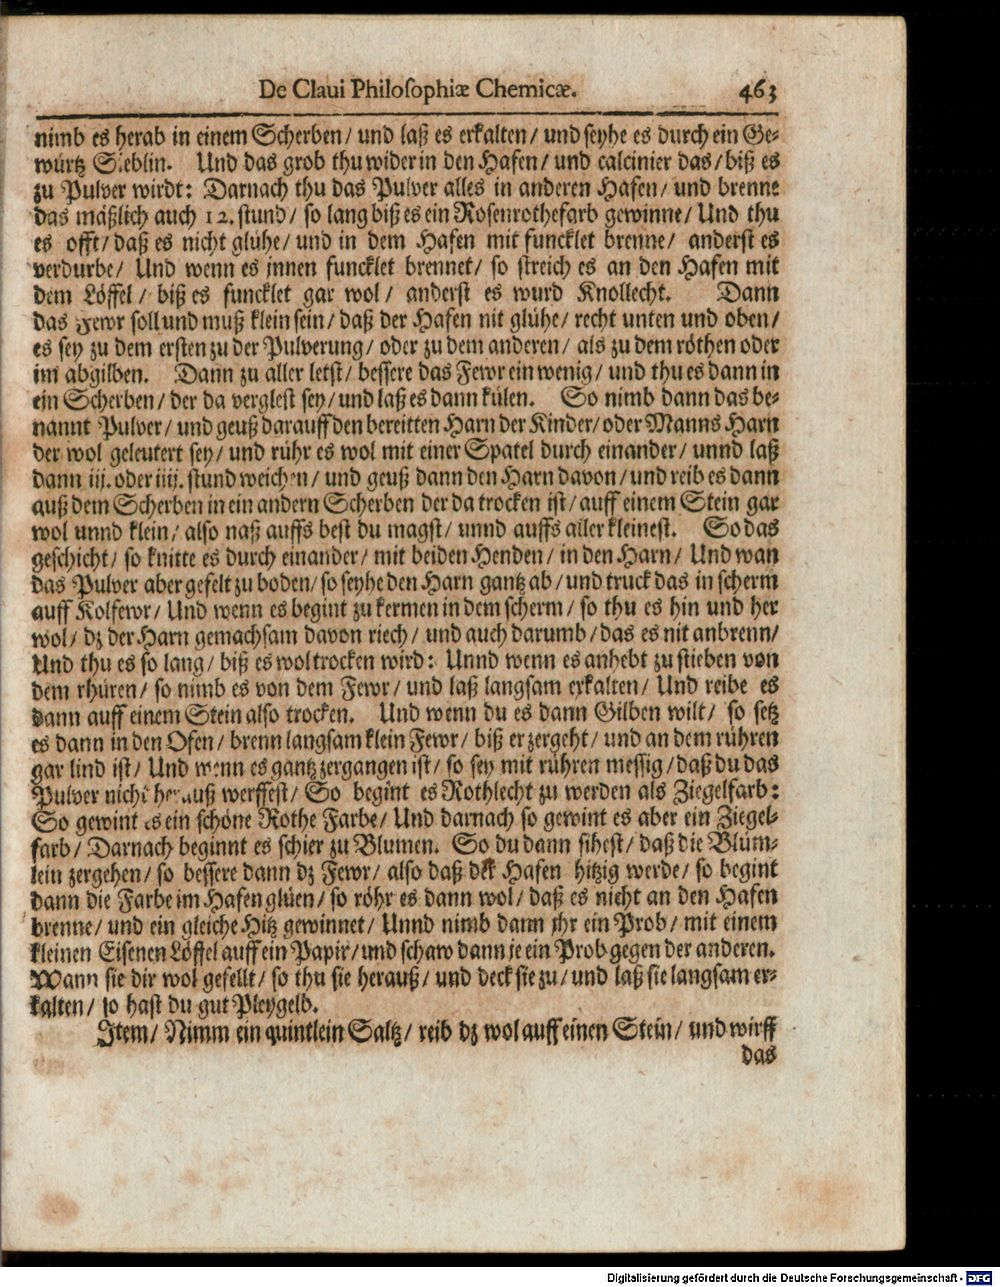 De Claui Philosophiæ Chemicæ. 463
nimb es herab in einem Scherben/ und laß es erkalten/ und seyhe es durch ein Ge-
würtz Sieblin. Und das grob thu wider in den Hafen/ und calcinier das/ biß es
zu Pulver wirdt: Darnach thu das Pulver alles in anderen Hafen/ und brenne
das mäßlich auch 12. stund/ so lang biß es ein Rosenrothefarb gewinne/ Und thu
es offt/ daß es nicht glühe/ und in dem Hafen mit funcklet brenne/ anderst es
verdurbe/ Und wenn es jnnen funcklet brennet/ so streich es an den Hafen mit
dem Löffel/ biß es funcklet gar wol/ anderst es wurd Knollecht. Dann
das Fewr soll und muß klein sein/ daß der Hafen nit glühe/ recht unten und oben/
es sey zu dem ersten zu der Pulverung/ oder zu dem anderen/ als zu dem röthen oder
im abgilben. Dann zu aller letst/ bessere das Fewr ein wenig/ und thu es dann in
ein Scherben/ der da verglest sey/ und laß es dann külen. So nimb dann das be-
nannt Pulver/ und geuß darauff den bereitten Harn der Kinder/ oder Manns Harn
der wol geleutert sey/ und rühr es wol mit einer Spatel durch einander/ unnd laß
dann iij. oder iiij. stund weichen/ und geuß dann den Harn davon/ und reib es dann
auß dem Scherben in ein andern Scherben der da trocken ist/ auff einem Stein gar
wol unnd klein/ also naß auffs best du magst/ unnd auffs aller kleinest. So das
geschicht/ so knitte es durch einander/ mit beiden Henden/ in den Harn/ Und wan
das Pulver aber gefelt zu boden/ so seyhe den Harn gantz ab/ und truck das in scherm
auff Kolfewr/ Und wenn es begint zu kermen in dem scherm/ so thu es hin und her
wol/ dz der Harn gemachsam davon riech/ und auch darumb/ das es nit anbrenn/
Und thu es so lang/ biß es wol trocken wird: Unnd wenn es anhebt zu stieben von
dem rhüren/ so nimb es von dem Fewr/ und laß langsam erkalten/ Und reibe es
dann auff einem Stein also trocken. Und wenn du es dann Gilben wilt/ so setz
es dann in den Ofen/ brenn langsam klein Fewr/ biß er zergeht/ und an dem rühren
gar lind ist/ Und wenn es gantz zergangen ist/ so sey mit rühren messig/ daß du das
Pulver nicht herauß werffest/ So begint es Rothlecht zu werden als Ziegelfarb:
So gewint es ein schöne Rothe Farbe/ Und darnach so gewint es aber ein Ziegel-
farb/ Darnach beginnt es schier zu Blumen. So du dann sihest/ daß die Blüm-
lein zergehen/ so bessere dann dz Fewr/ also daß der Hafen hitzig werde/ so begint
dann die Farbe im Hafen glüen/ so röhr es dann wol/ daß es nicht an den Hafen
brenne/ und ein gleiche Hitz gewinnet/ Unnd nimb dann jhr ein Prob/ mit einem
kleinen Eisenen Löffel auff ein Papir/ und schaw dann je ein Prob gegen der anderen.
Wann sie dir wol gefellt/ so thu sie herauß/ und deck sie zu/ und laß sie langsam er-
kalten/ so hast du gut Pleygelb.
Item/ Nimm ein quintlein Saltz/ reib dz wol auff einen Stein/ und wirff
das
Digitalisierung gefördert durch die Deutsche Forschungsgemeinschaft - DFG